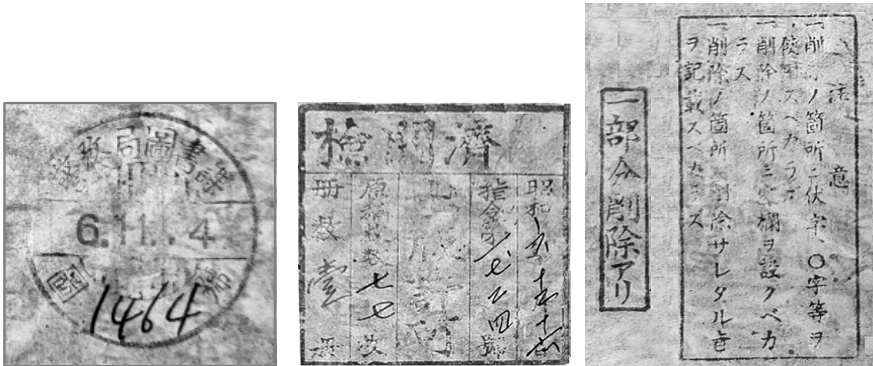 務局圖書課
6.11.4
1464
濟閲検
昭和
指令第七二四號
原稿枚数七七枚
冊数壹冊
注意
一、削除ノ箇所ニ伏字、〇字等ヲ
使用スベカラズ
一、削除ノ箇所ニ空欄ヲ設クベカ
ラズ
一、削除ノ箇所ニ削除サレタル旨
ヲ記載スベカラズ
一部分削除アリ